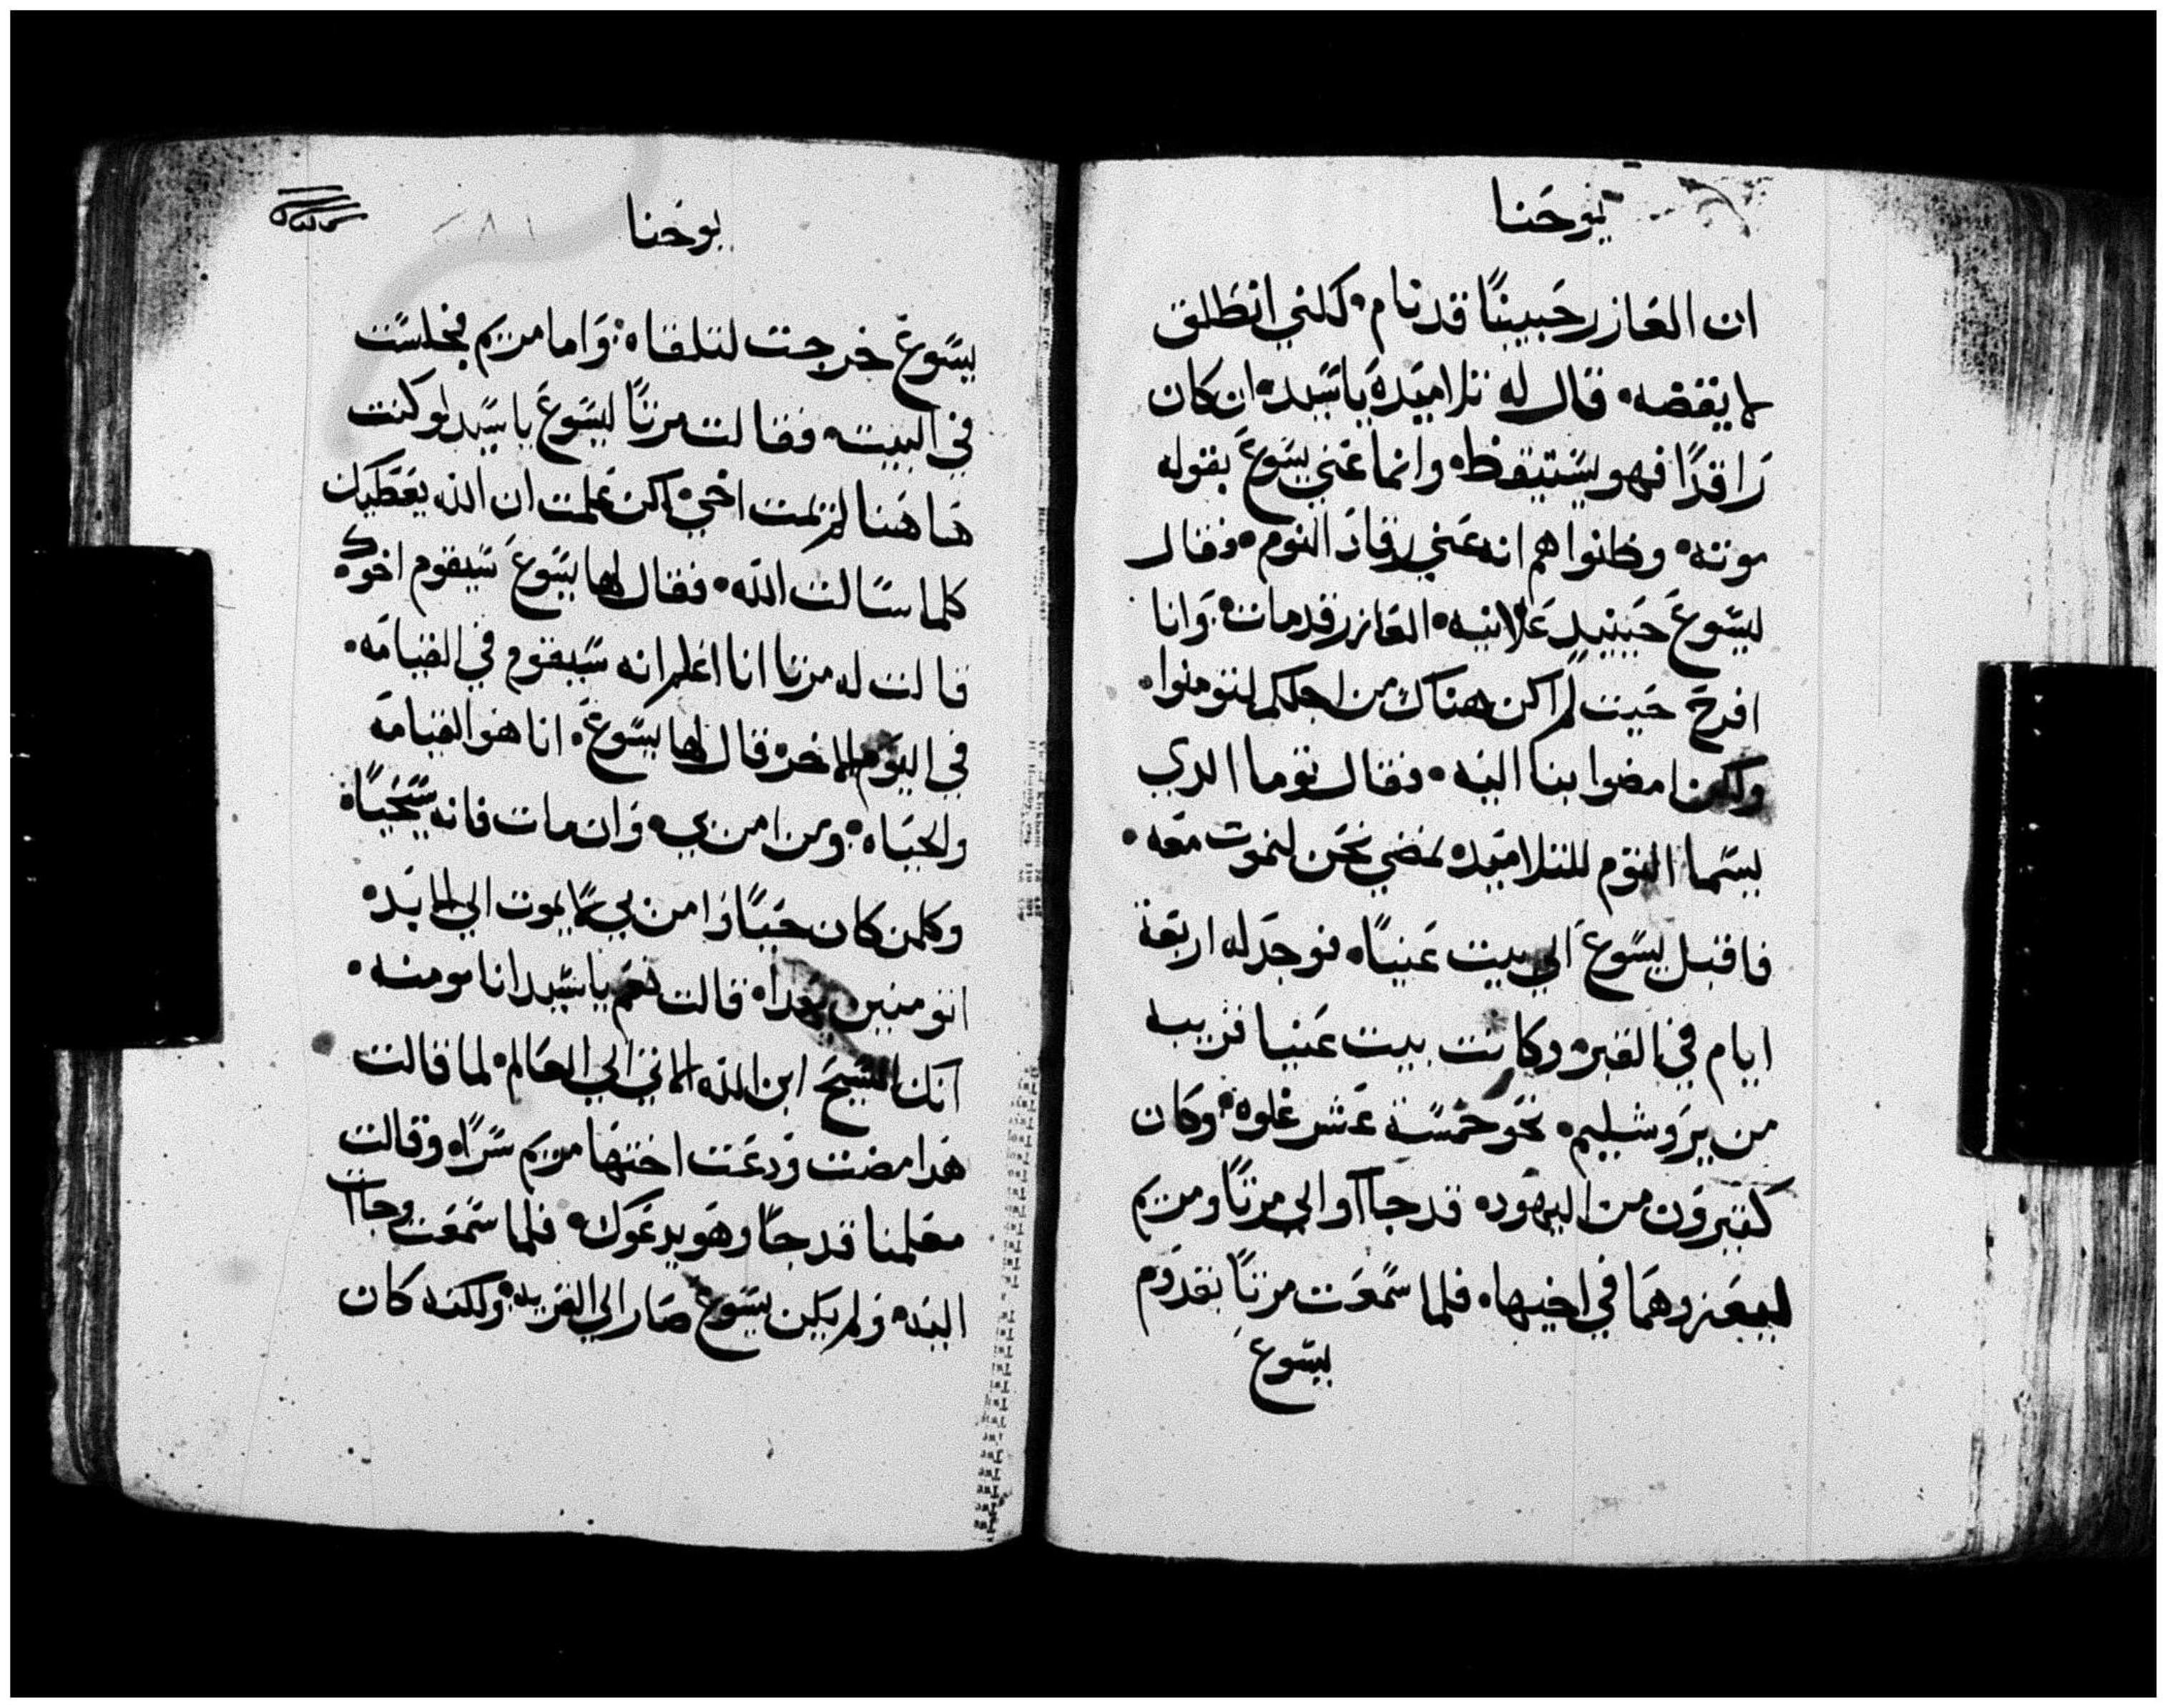 يوحنا
ان العازر حبيبنا قد نام • لكني انطلق
لايقضه • قال له تلاميده ياسيد • ان كان
راقدًا فهو يستيقظ • وانما عني يسوع بقوله
موته • وظنوا هم انه عني رقاد النوم • وقال
ليسوع حينيد علانيه • العازر قد مات • وانا
افرح حيت لم اكن هناك من اجلكم لتومنوا •
ولكن امضوا بنا اليه • فقال توما الدي
يسما التوم للتلاميده نمضي نحن لنموت معه •
فاقبل يسوع الي بيت عنيا • فوجد له اربعة
ايام في القبر • وكانت بيت عنيا قريبه
من يروشليم • نحو خمسة عشر غلوه • وكان
كتيرون من اليهود • قد جااوا الي مرتا ومريم
ليعزوهما في اخيها • فلما سمعت مرتا بقدوم
يسوع
يوحنا
يسوع خرجت لتلقاه • واما مريم فجلست
في البيت • فقالت مرتا ليسوع ياسيد لو كنت
هاهنا لم يمت اخي • لكن علمت ان الله يعطيك
كلما سالت الله • فقال لها يسوع سيقوم اخوك •
قالت له مرتا انا اعلم انه سيقوم في القيامه •
في اليوم الاخر • قال لها يسوع • انا هو القيامه
والحياه • ومن امن بي • وان مات فانه سيحيا •
وكلمن كان حيًا وامن بي لايموت الي الابد •
اتومنين بهدا • قالت نعم ياسيد انا مومنه •
انك المسيح ابن الله الاتي الي العالم • لما قالت
هدا مضت ودعت اختها مريم سرًا • وقالت
معلمنا قد جا وهو يدعوك • فلما سمعت وجاات
اليه • ولم يكن يسوع صار الي القريه • ولكنه كان